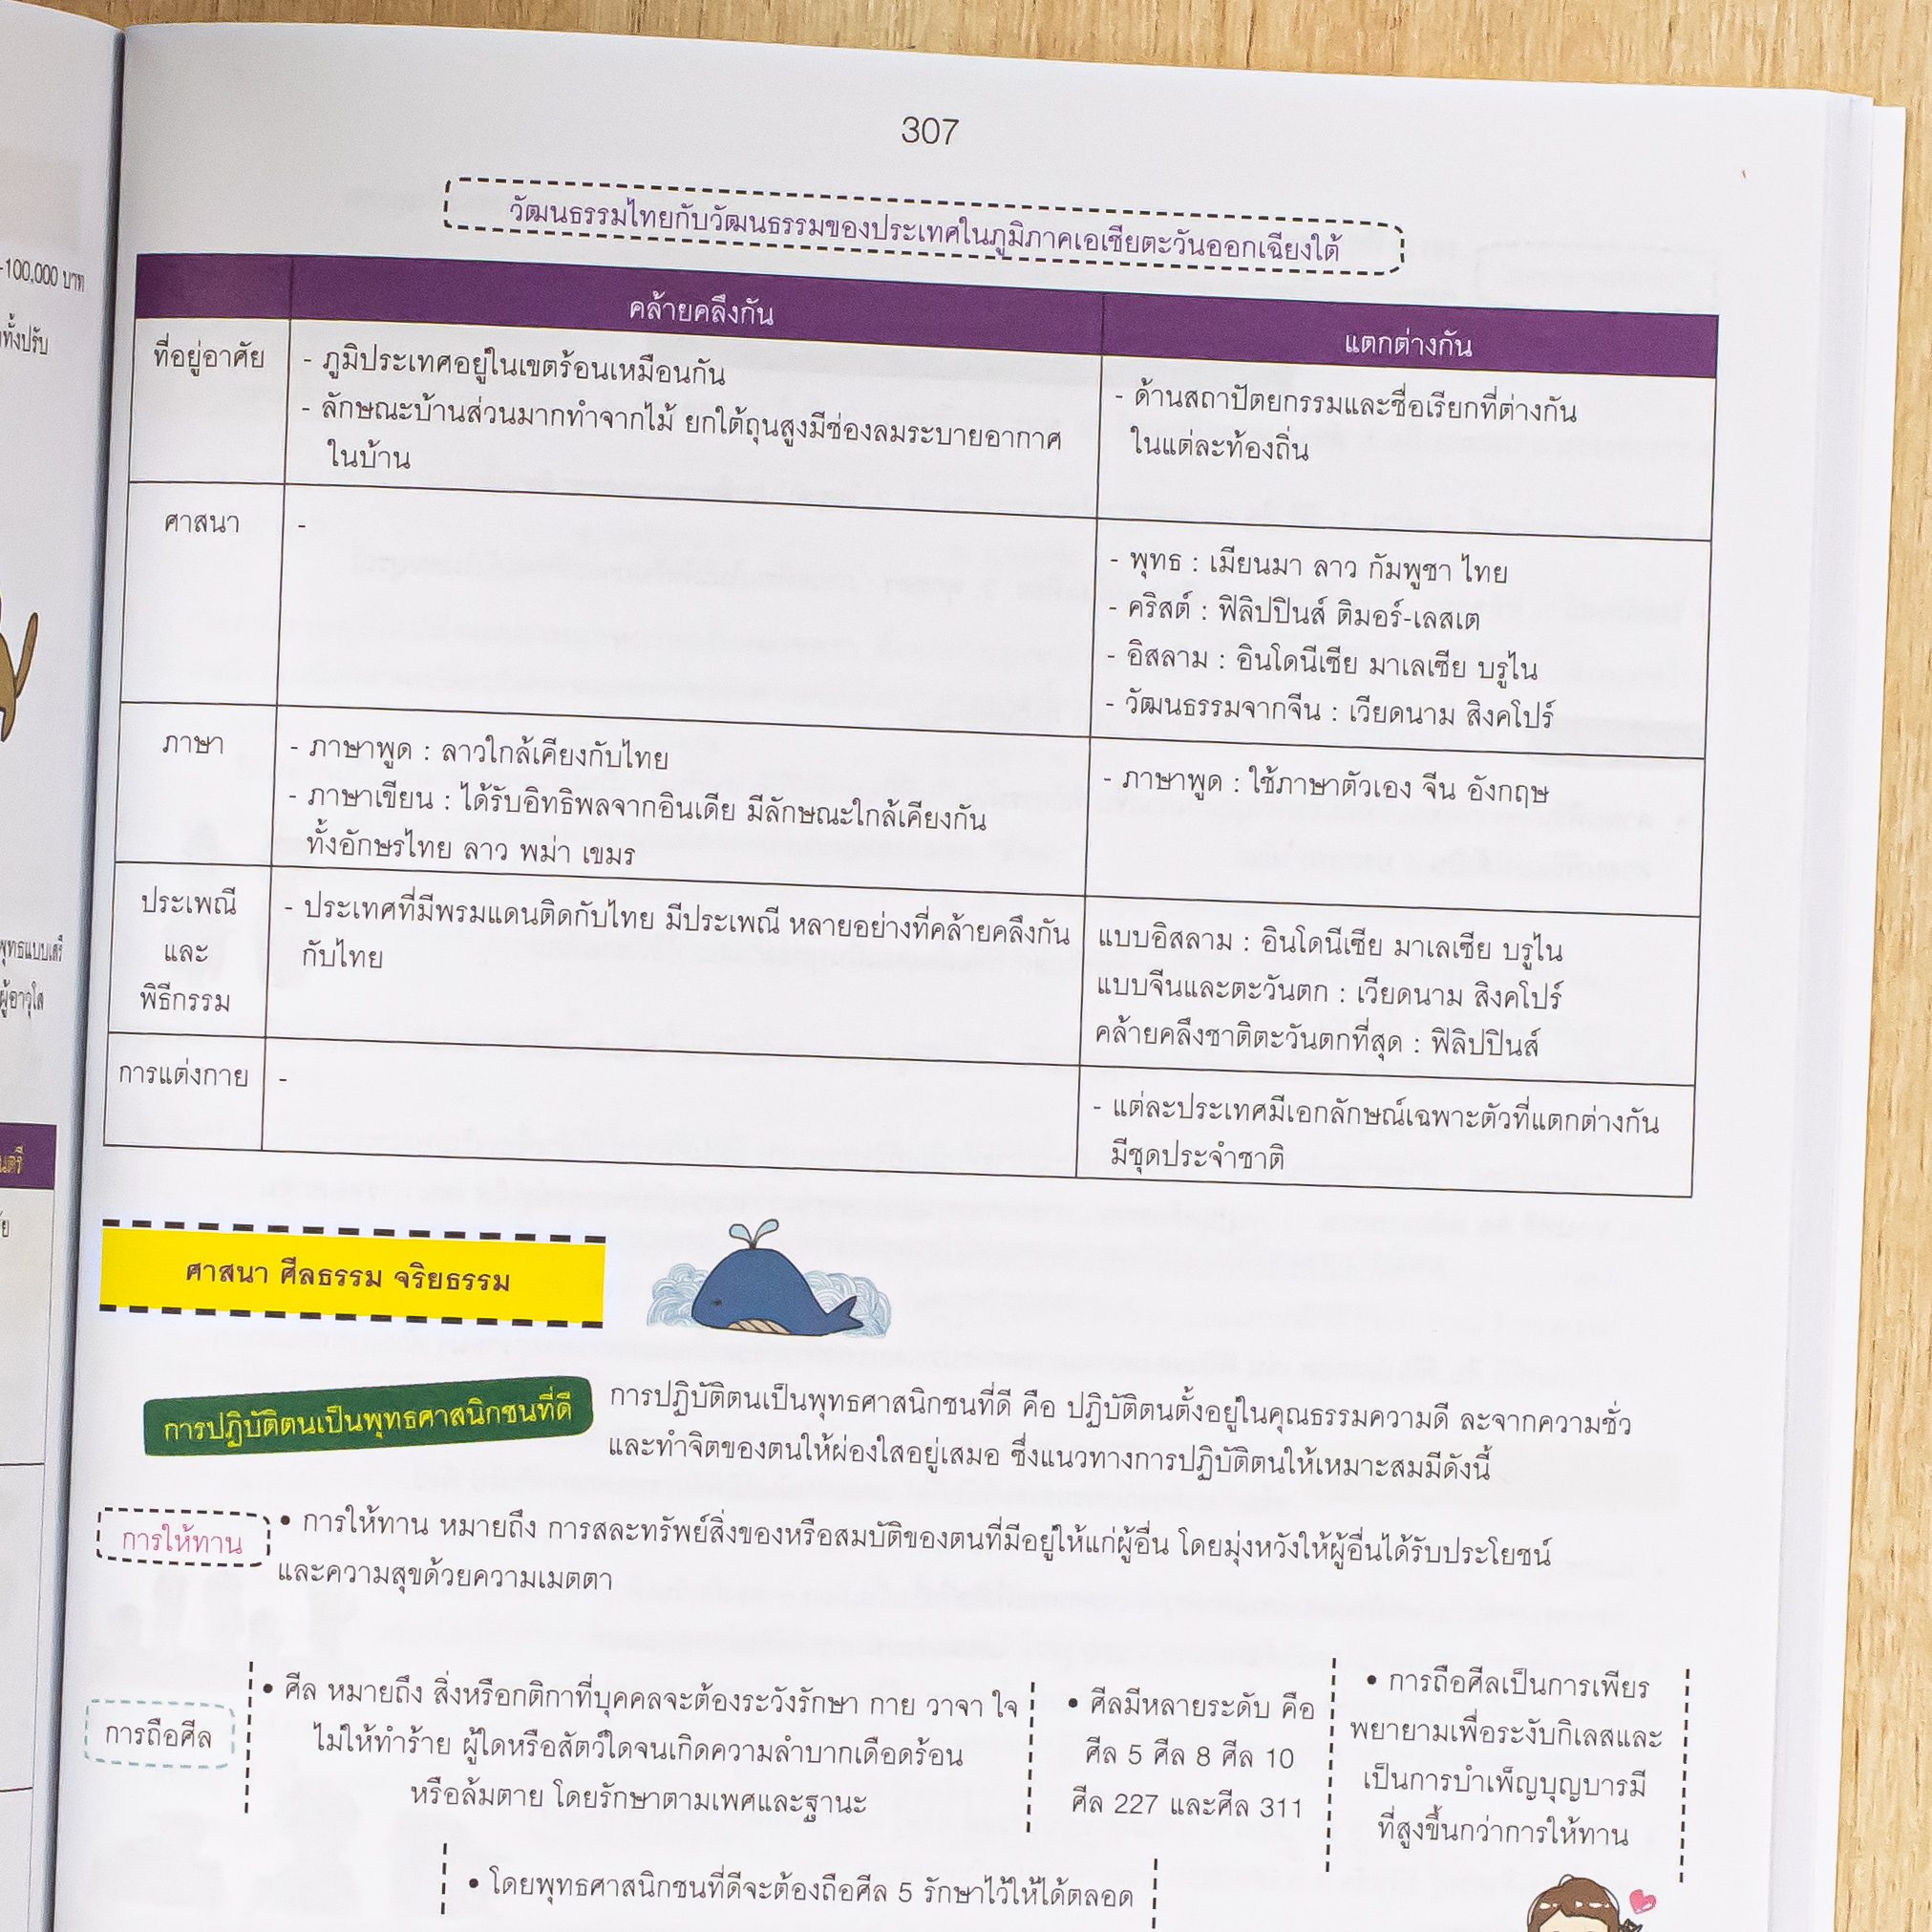 307
วัฒนธรรมไทยกับวัฒนธรรมของประเทศในภูมิภาคเอเชียตะวันออกเฉียงใต้
คล้ายคลึงกัน
แตกต่างกัน
ที่อยู่อาศัย
- ภูมิประเทศอยู่ในเขตร้อนเหมือนกัน
- ลักษณะบ้านส่วนมากทำจากไม้ ยกใต้ถุนสูงมีช่องลมระบายอากาศ
ในบ้าน
- ด้านสถาปัตยกรรมและชื่อเรียกที่ต่างกัน
ในแต่ละท้องถิ่น
ศาสนา
-
- พุทธ : เมียนมา ลาว กัมพูชา ไทย
- คริสต์ : ฟิลิปปินส์ ติมอร์-เลสเต
- อิสลาม : อินโดนีเซีย มาเลเซีย บรูไน
- วัฒนธรรมจากจีน : เวียดนาม สิงคโปร์
ภาษา
- ภาษาพูด : ลาวใกล้เคียงกับไทย
- ภาษาเขียน : ได้รับอิทธิพลจากอินเดีย มีลักษณะใกล้เคียงกัน
ทั้งอักษรไทย ลาว พม่า เขมร
- ภาษาพูด : ใช้ภาษาตัวเอง จีน อังกฤษ
ประเพณี
และ
พิธีกรรม
- ประเทศที่มีพรมแดนติดกับไทย มีประเพณี หลายอย่างที่คล้ายคลึงกัน
กับไทย
แบบอิสลาม : อินโดนีเซีย มาเลเซีย บรูไน
แบบจีนและตะวันตก : เวียดนาม สิงคโปร์
คล้ายคลึงชาติตะวันตกที่สุด : ฟิลิปปินส์
การแต่งกาย
-
- แต่ละประเทศมีเอกลักษณ์เฉพาะตัวที่แตกต่างกัน
มีชุดประจำชาติ
ศาสนา ศีลธรรม จริยธรรม
การปฏิบัติตนเป็นพุทธศาสนิกชนที่ดี
การปฏิบัติตนเป็นพุทธศาสนิกชนที่ดี คือ ปฏิบัติตนตั้งอยู่ในคุณธรรมความดี ละจากความชั่ว
และทำจิตของตนให้ผ่องใสอยู่เสมอ ซึ่งแนวทางการปฏิบัติตนให้เหมาะสมมีดังนี้
การให้ทาน
• การให้ทาน หมายถึง การสละทรัพย์สิ่งของหรือสมบัติของตนที่มีอยู่ให้แก่ผู้อื่น โดยมุ่งหวังให้ผู้อื่นได้รับประโยชน์
และความสุขด้วยความเมตตา
การถือศีล
• ศีล หมายถึง สิ่งหรือกติกาที่บุคคลจะต้องระวังรักษา กาย วาจา ใจ
ไม่ให้ทำร้าย ผู้ใดหรือสัตว์ใดจนเกิดความลำบากเดือดร้อน
หรือล้มตาย โดยรักษาตามเพศและฐานะ
• ศีลมีหลายระดับ คือ
ศีล 5 ศีล 8 ศีล 10
ศีล 227 และศีล 311
• การถือศีลเป็นการเพียร
พยายามเพื่อระงับกิเลสและ
เป็นการบำเพ็ญบุญบารมี
ที่สูงขึ้นกว่าการให้ทาน
• โดยพุทธศาสนิกชนที่ดีจะต้องถือศีล 5 รักษาไว้ให้ได้ตลอด
-100,000 บาท
ทั้งปรับ
พุทธแบบเสรี
ผู้อาวุโส